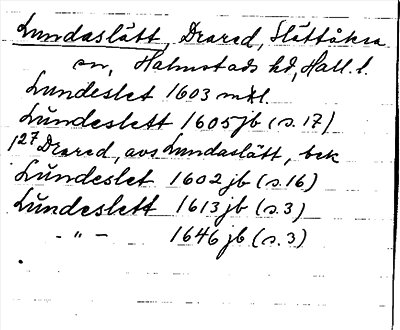 Lundaslätt, Drared, Slättåkra
sn, Halmstads hd, Hall. l.
Lundeslet 1603 mtl.
Lŭndeslett 1605 jb (s. 17)
127 Drared, avs Lundaslätt, bek
Lŭndeslet 1602 jb (s. 16)
Lŭndeslett 1613 jb (s. 3)
- " - 1646 jb (s. 3)